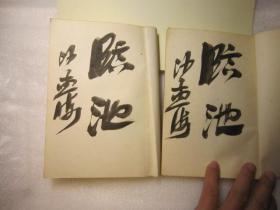 臨池
沙孟海
臨池
沙孟海